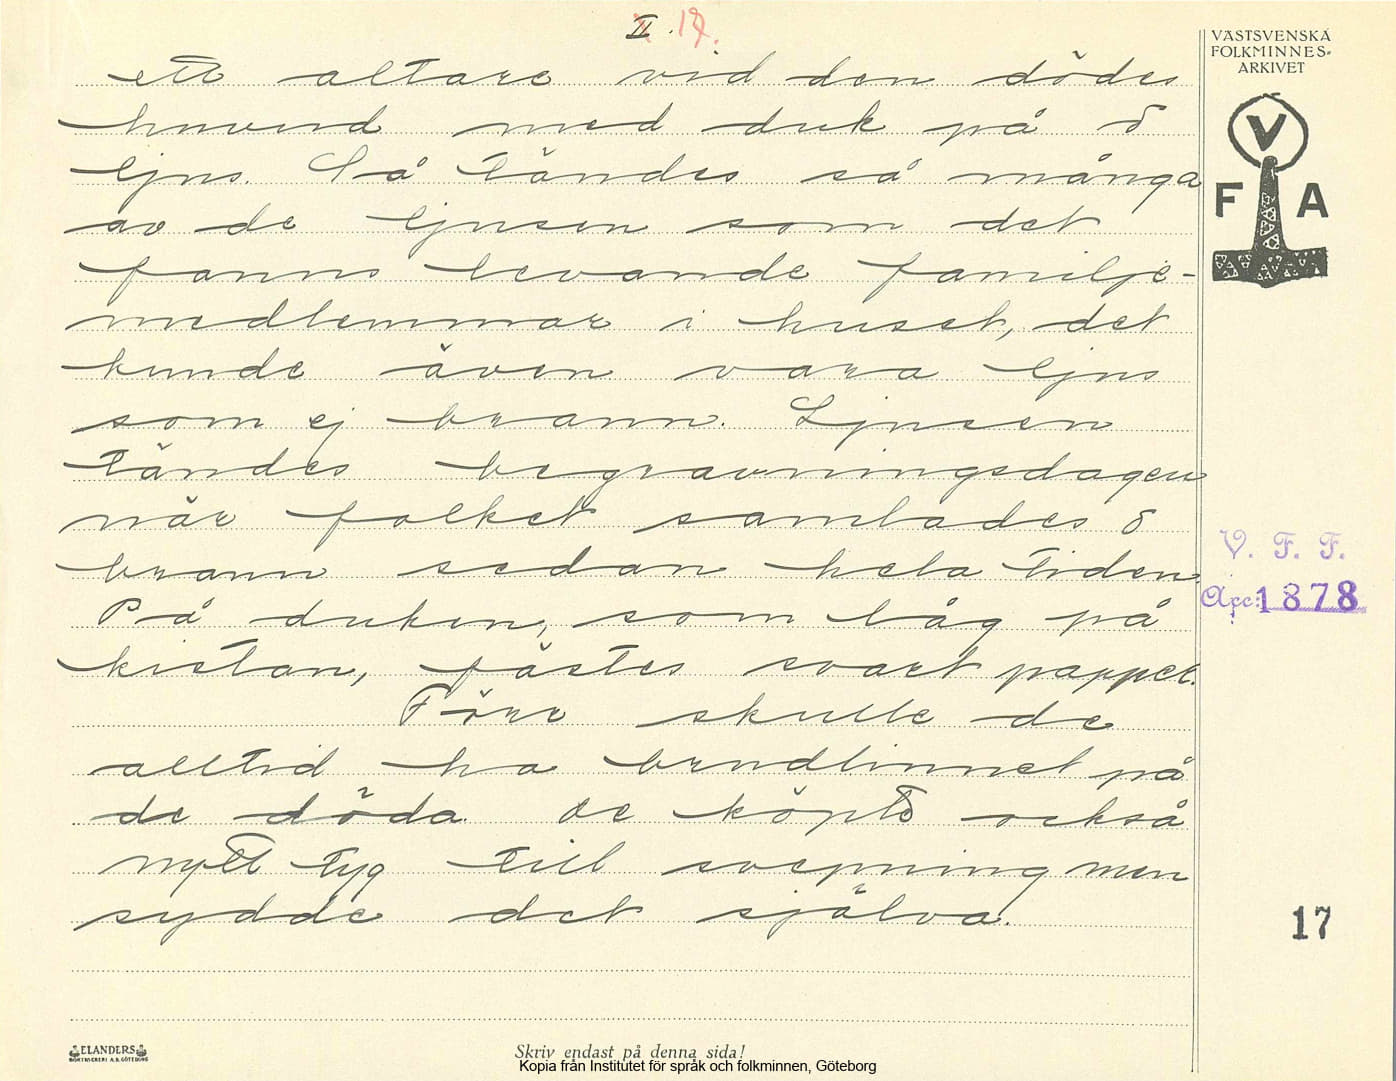 II. 17.
VÄSTSVENSKA
FOLKMINNES-
ARKIVET
V
F A
ett altare vid den dödes
huvud med duk på o
ljus. Så tändes så många
av de ljusen som det
fanns levande familje-
medlemmar i huset, det
kunde även vara ljus
som ej brann. Ljusen
tändes begravningsdagen
när folket samlades o
brann sedan hela tiden.
På duken, som låg på
kistan, fästes svart papper.
Förr skulle de
alltid ha brudlinnet på
de döda. De köpte också
nytt tyg till svepning men
sydde det själva.
V. F. F.
Acc: 1878
17
ELANDERS
BOKTRYCKERI A.B. GÖTEBORG
Skriv endast på denna sida!
Kopia från Institutet för språk och folkminnen, Göteborg